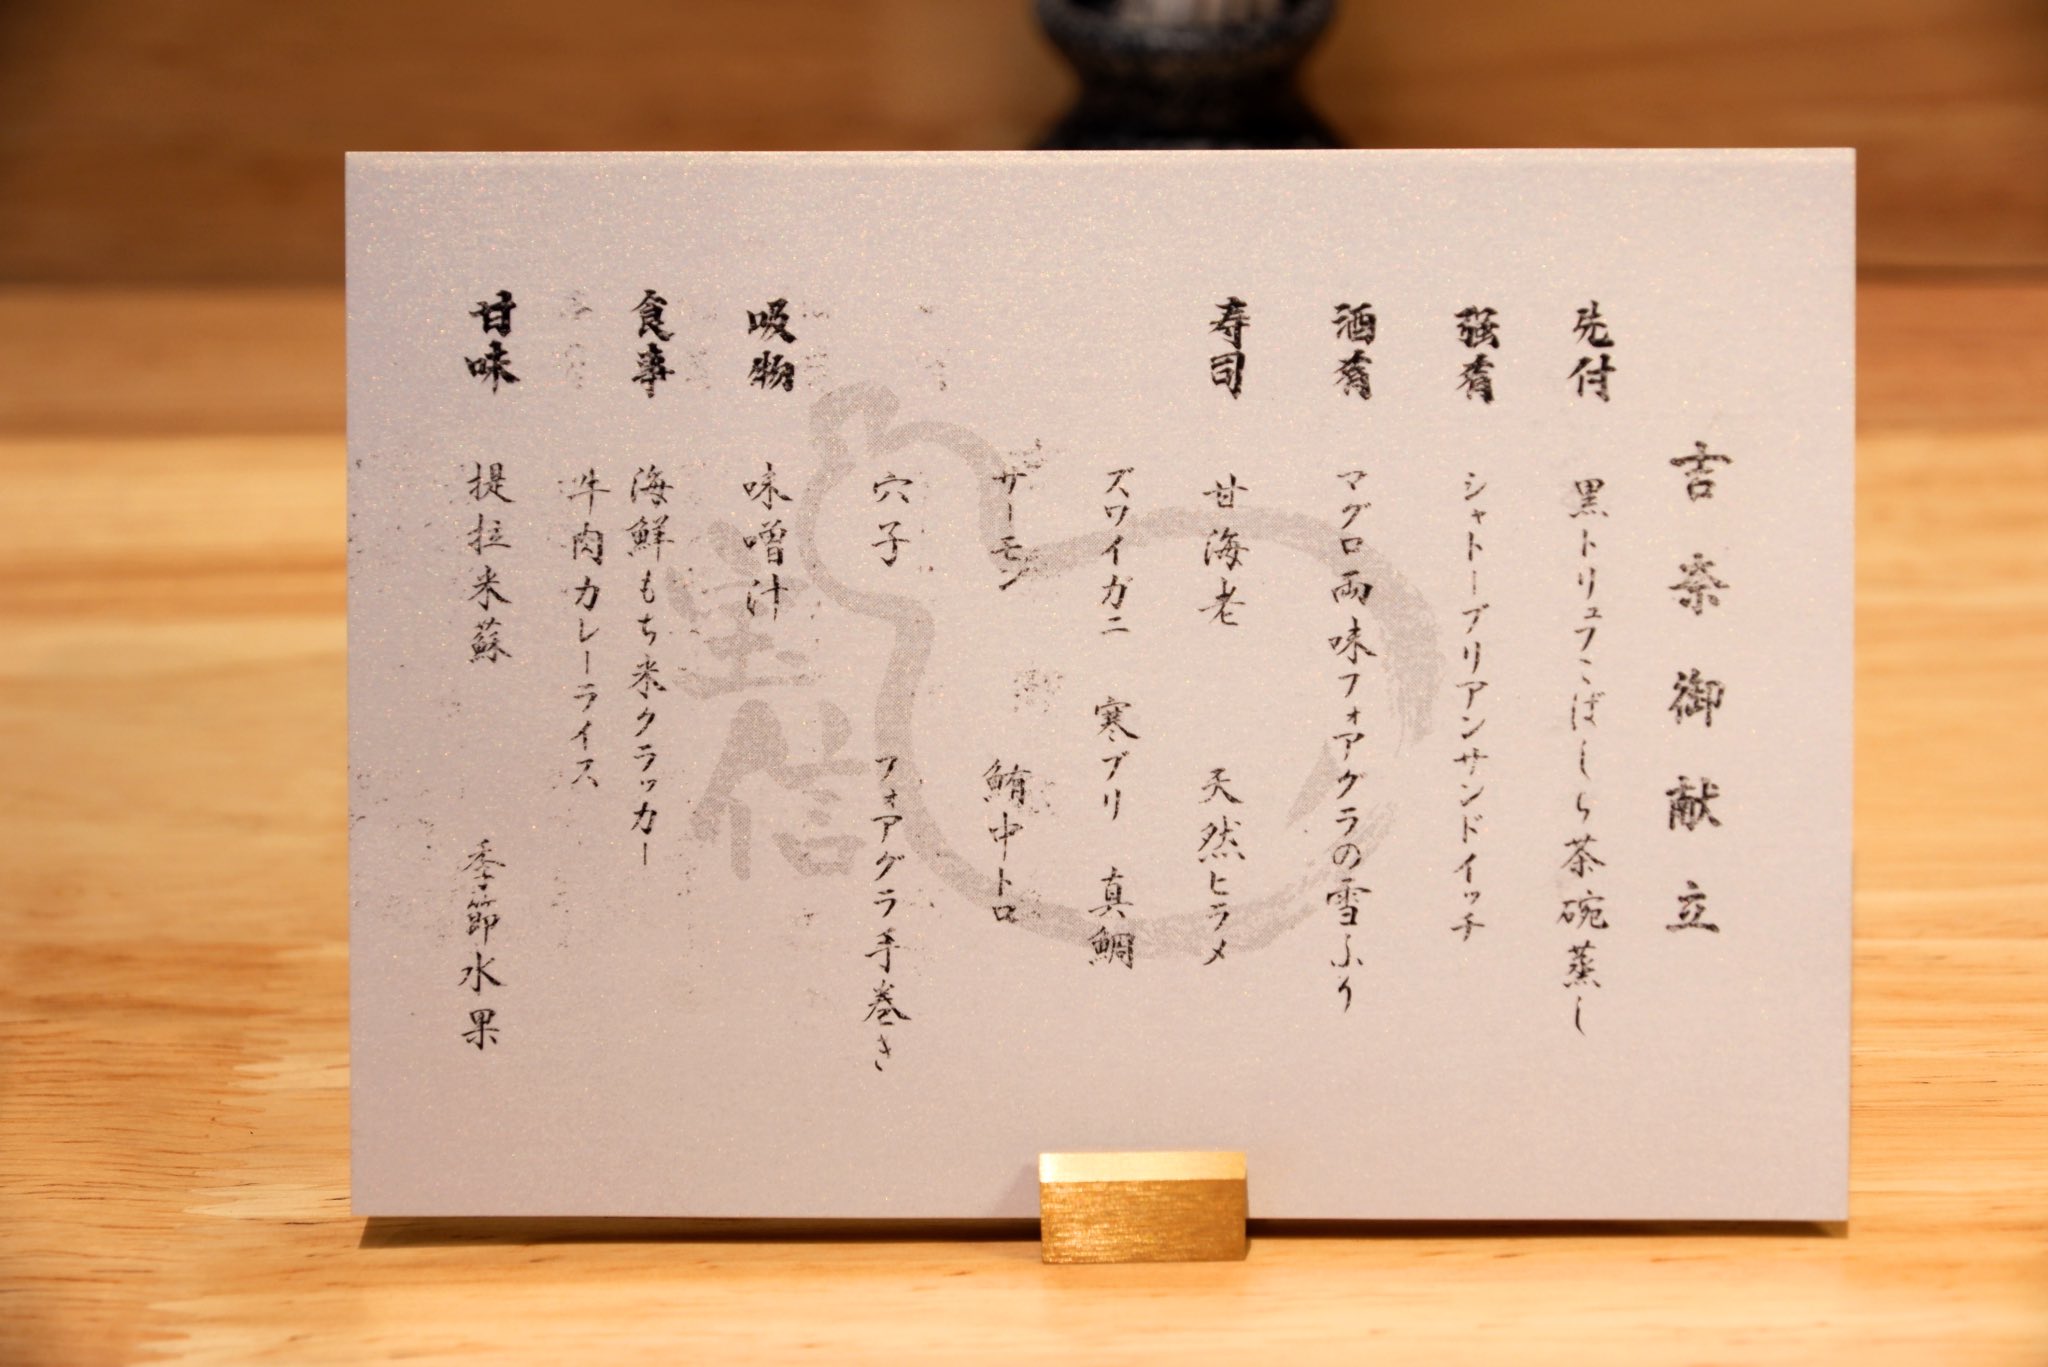 吉奈御献立
先付 黒トリュフこばしら茶碗蒸し
强肴 シャトーブリアンサンドイッチ
酒肴 マグロ両味フォアグラの雪ふり
寿司 甘海老 天然ヒラメ
ズワイガニ 寒ブリ 真鯛
サーモン 鮪中トロ
穴子 フォアグラ手巻き
吸物 味噌汁
食事 海鮮もち米クラッカー
牛肉カレーライス
甘味 提拉米蘇 季節水果